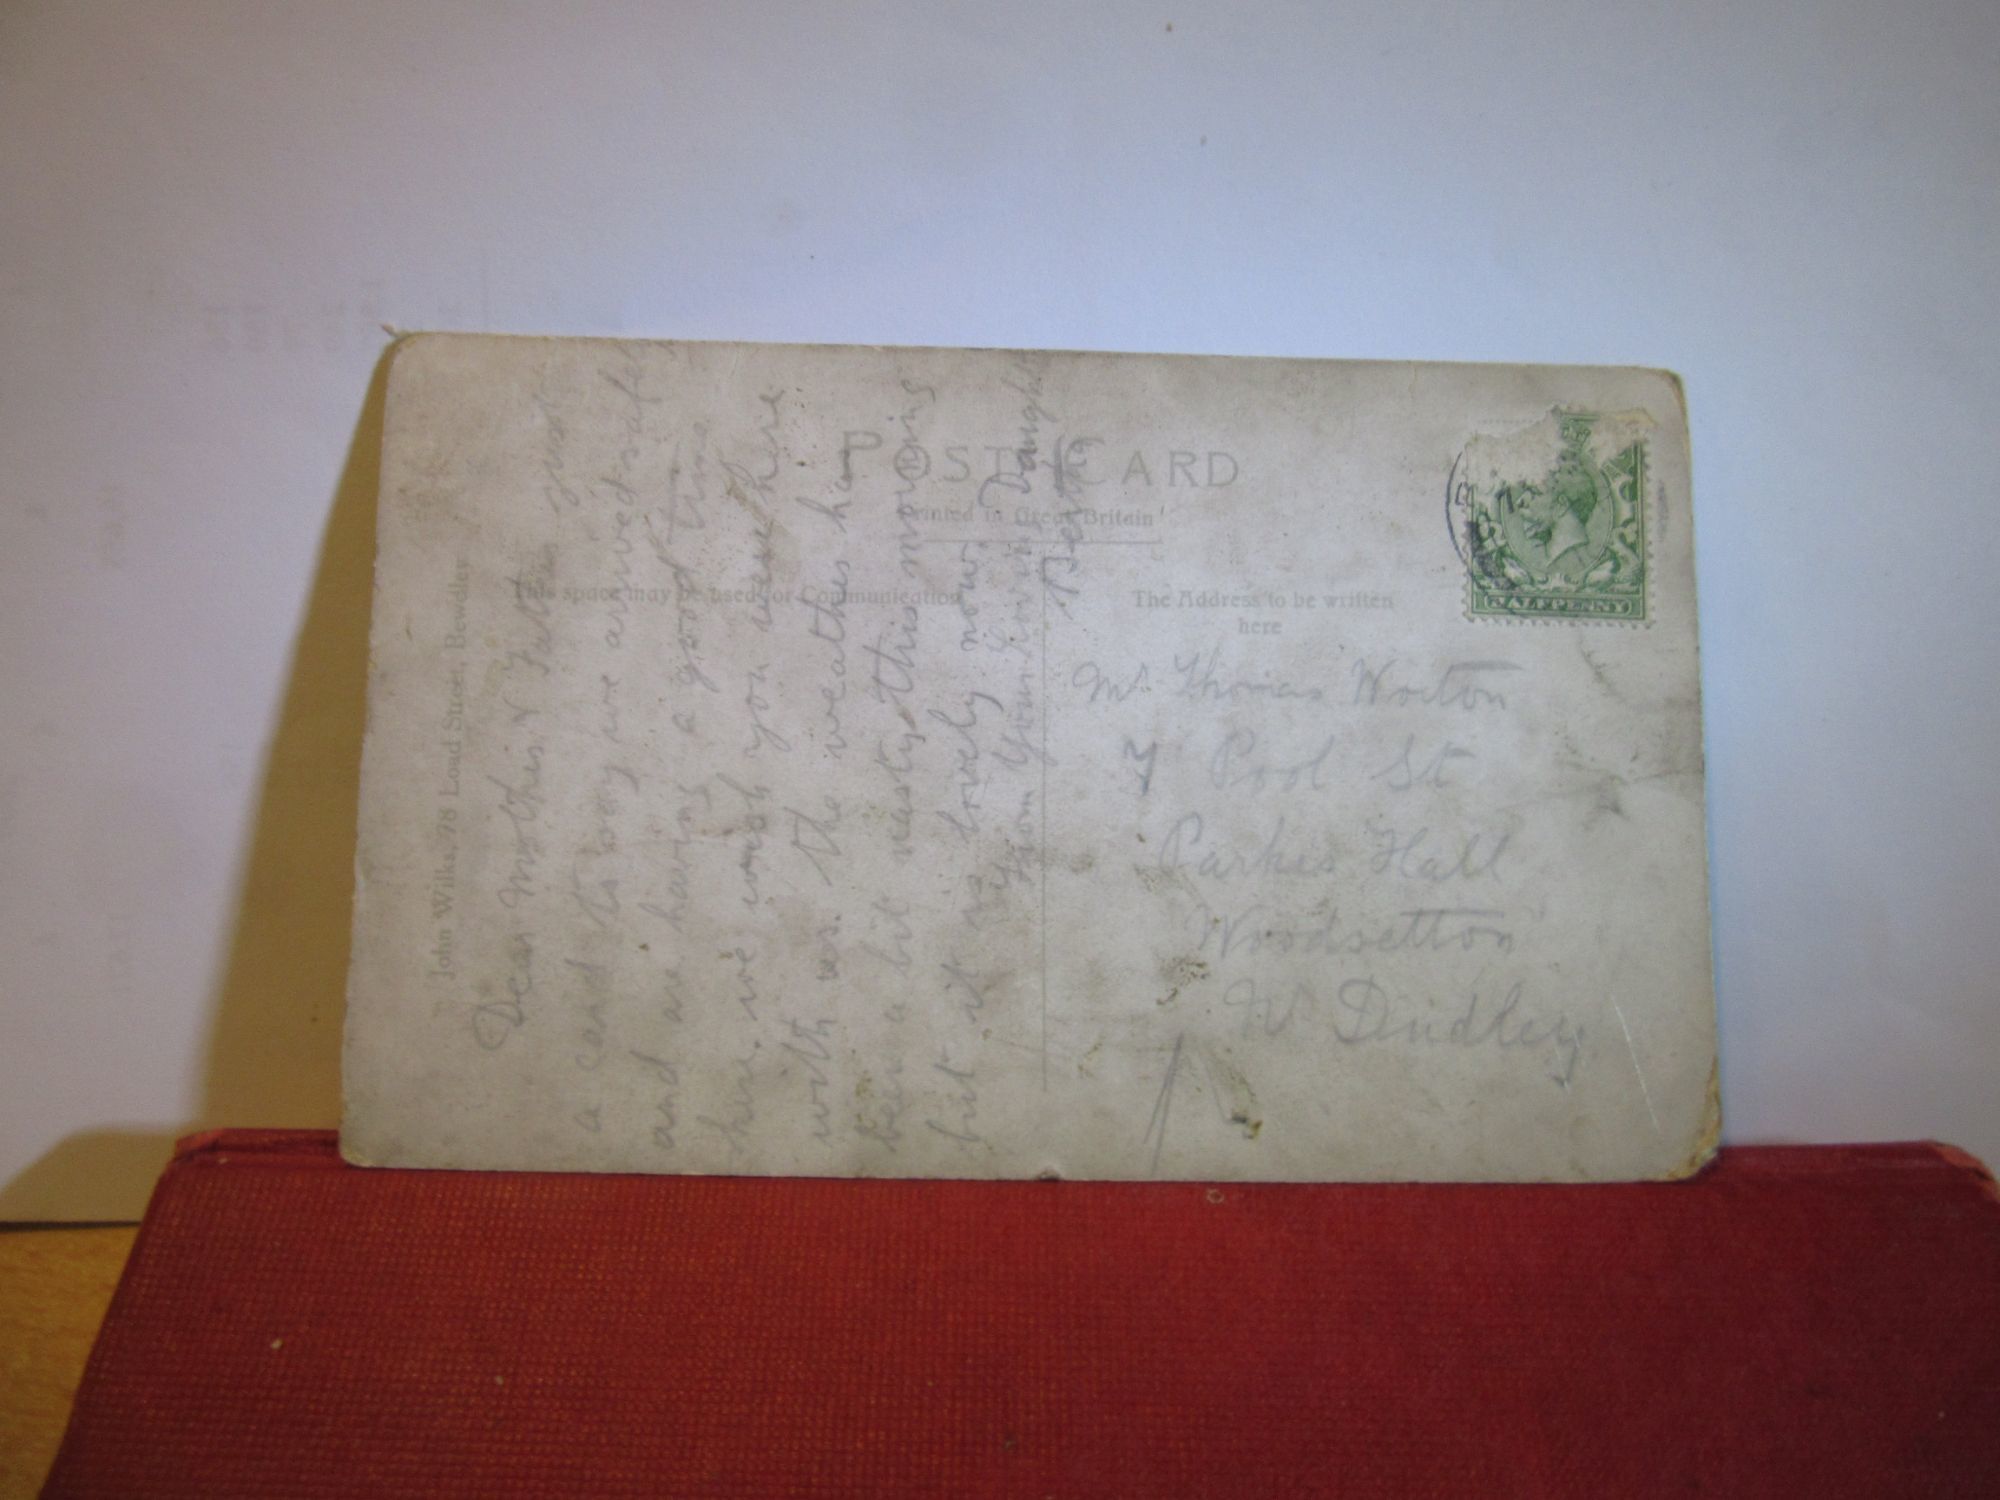 POST CARD
Printed in Great Britain
This space may be used for Communication
The Address to be written
here
John Wilks, 78 Load Street, Bewdley
Dear Mother & Father just
a card to say we arrived safe
and are having a good time
here. we wish you were here
with us. the weather has
been a bit nasty this morning
but it is lovely now.
from Your Loving Daught
Bertha
Mr Thomas Worton
7 Pool St
Parkes Hall
Woodsetton
N Dudley
HALFPENNY